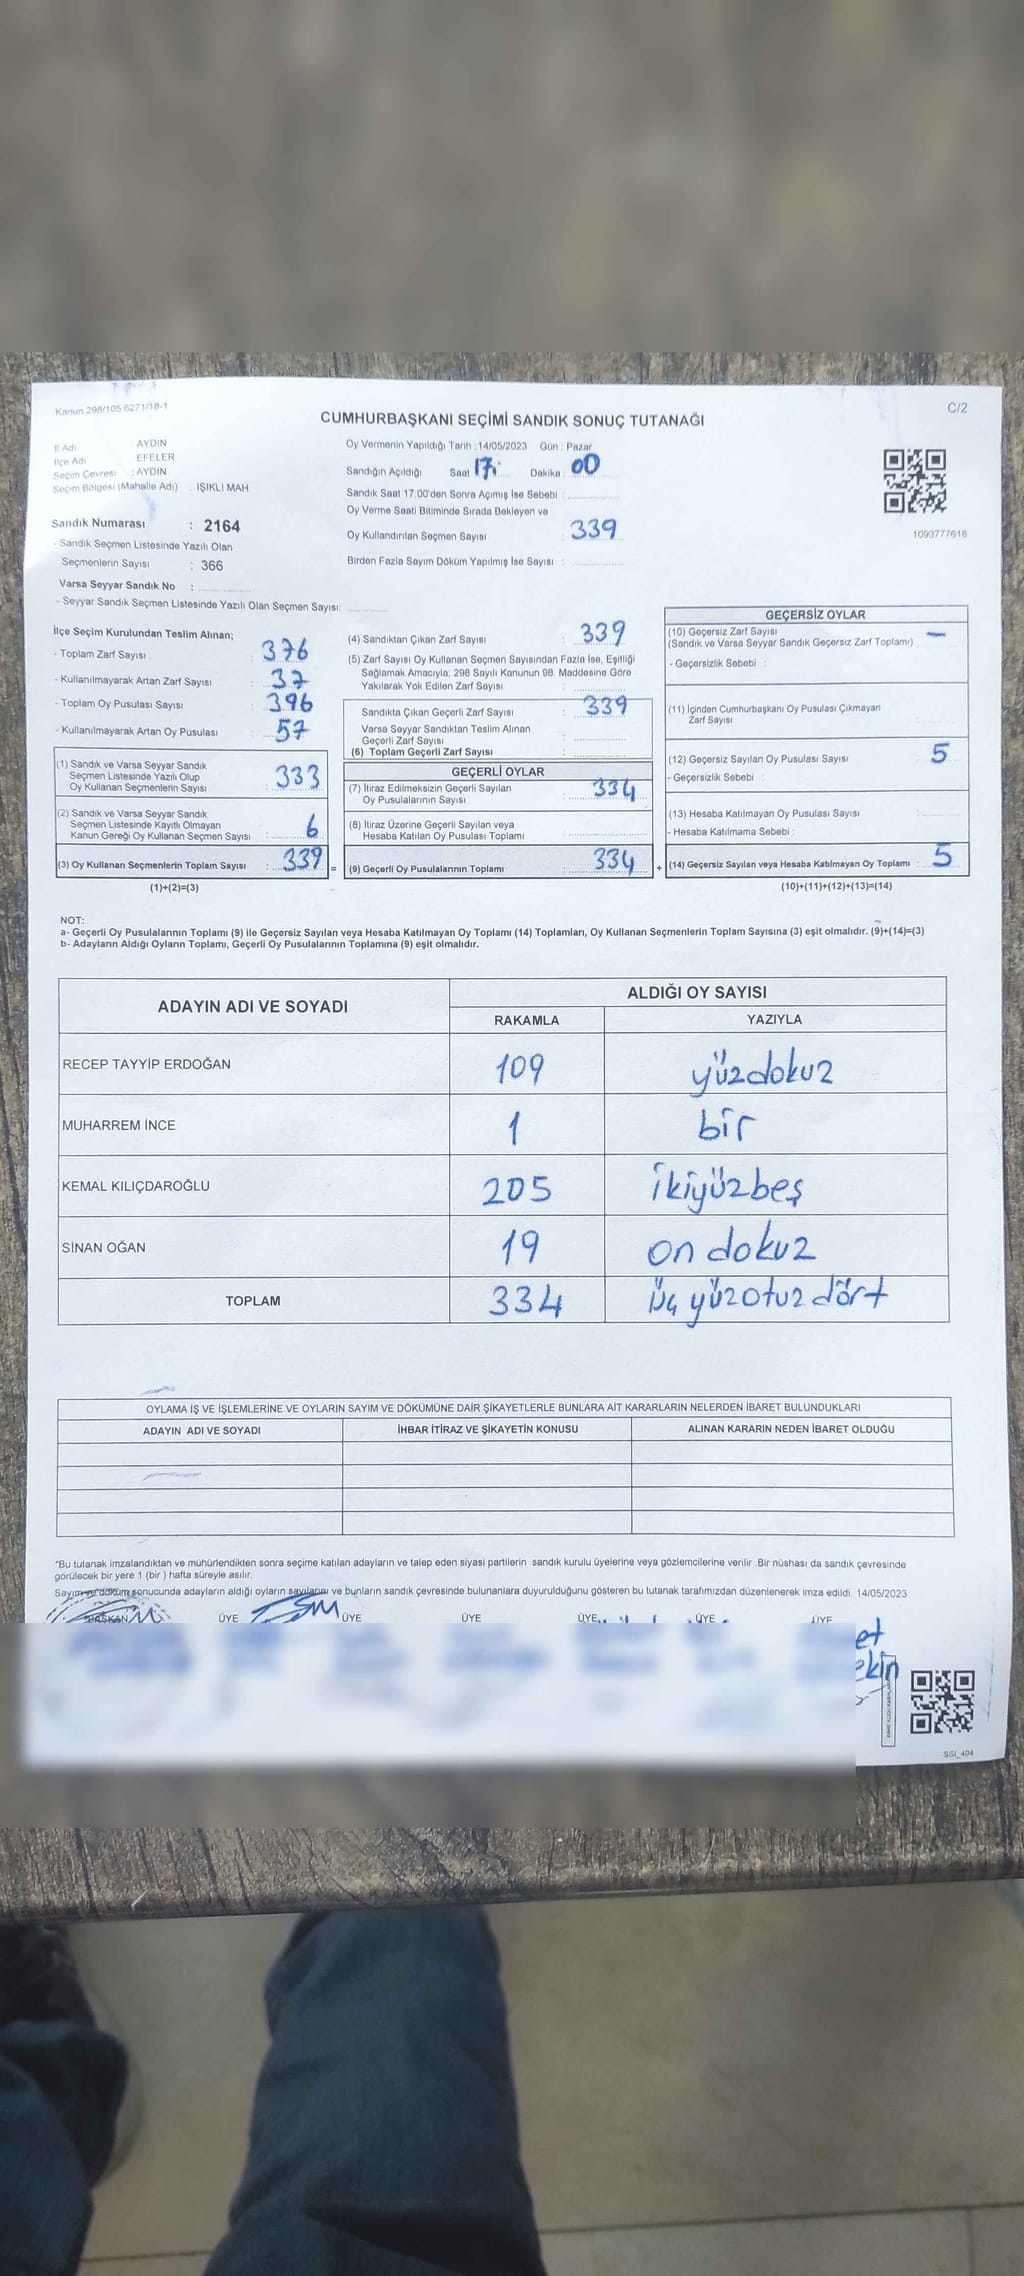 Kanun.298/105,6271/18-1
C/2
CUMHURBAŞKANI SEÇİMİ SANDIK SONUÇ TUTANAĞI
İl Adı AYDIN
İlçe Adı EFELER
Seçim Çevresi : AYDIN
Seçim Bölgesi (Mahalle Adı) IŞIKLI MAH
Sandık Numarası : 2164
- Sandık Seçmen Listesinde Yazılı Olan
Seçmenlerin Sayısı : 366
Varsa Seyyar Sandık No :
- Seyyar Sandık Seçmen Listesinde Yazılı Olan Seçmen Sayısı:
Oy Vermenin Yapıldığı Tarih : 14/05/2023 Gün : Pazar
Sandığın Açıldığı Saat 17 Dakika : 00
Sandık Saat 17.00'den Sonra Açımış İse Sebebi :
Oy Verme Saati Bitiminde Sırada Bekleyen ve
Oy Kullandırılan Seçmen Sayısı : 339
Birden Fazla Sayım Döküm Yapılmış İse Sayısı :
1093777618
İlçe Seçim Kurulundan Teslim Alınan;
- Toplam Zarf Sayısı : 376
- Kullanılmayarak Artan Zarf Sayısı : 37
- Toplam Oy Pusulası Sayısı : 396
- Kullanılmayarak Artan Oy Pusulası : 57
(1) Sandık ve Varsa Seyyar Sandık
Seçmen Listesinde Yazılı Olup
Oy Kullanan Seçmenlerin Sayısı : 333
(2) Sandık ve Varsa Seyyar Sandık
Seçmen Listesinde Kayıtlı Olmayan
Kanun Gereği Oy Kullanan Seçmen Sayısı : 6
(3) Oy Kullanan Seçmenlerin Toplam Sayısı : 339 =
(1)+(2)=(3)
(4) Sandıktan Çıkan Zarf Sayısı : 339
(5) Zarf Sayısı Oy Kullanan Seçmen Sayısından Fazla İse, Eşitliği
Sağlamak Amacıyla; 298 Sayılı Kanunun 98. Maddesine Göre
Yakılarak Yok Edilen Zarf Sayısı :
Sandıkta Çıkan Geçerli Zarf Sayısı : 339
Varsa Seyyar Sandıktan Teslim Alınan
Geçerli Zarf Sayısı :
(6) Toplam Geçerli Zarf Sayısı :
GEÇERLİ OYLAR
(7) İtiraz Edilmeksizin Geçerli Sayılan
Oy Pusulalarının Sayısı : 334
(8) İtiraz Üzerine Geçerli Sayılan veya
Hesaba Katılan Oy Pusulası Toplamı :
(9) Geçerli Oy Pusulalarının Toplamı : 334 +
GEÇERSİZ OYLAR
(10) Geçersiz Zarf Sayısı : –
(Sandık ve Varsa Seyyar Sandık Geçersiz Zarf Toplamı)
- Geçersizlik Sebebi :
(11) İçinden Cumhurbaşkanı Oy Pusulası Çıkmayan
Zarf Sayısı
(12) Geçersiz Sayılan Oy Pusulası Sayısı : 5
- Geçersizlik Sebebi :
(13) Hesaba Katılmayan Oy Pusulası Sayısı :
- Hesaba Katılmama Sebebi :
(14) Geçersiz Sayılan veya Hesaba Katılmayan Oy Toplamı : 5
(10)+(11)+(12)+(13)=(14)
NOT:
a- Geçerli Oy Pusulalarının Toplamı (9) ile Geçersiz Sayılan veya Hesaba Katılmayan Oy Toplamı (14) Toplamları, Oy Kullanan Seçmenlerin Toplam Sayısına (3) eşit olmalıdır. (9)+(14)=(3)
b- Adayların Aldığı Oyların Toplamı, Geçerli Oy Pusulalarının Toplamına (9) eşit olmalıdır.
ADAYIN ADI VE SOYADI ALDIĞI OY SAYISI
RAKAMLA YAZIYLA
RECEP TAYYİP ERDOĞAN 109 yüzdokuz
MUHARREM İNCE 1 bir
KEMAL KILIÇDAROĞLU 205 ikiyüzbeş
SİNAN OĞAN 19 on dokuz
TOPLAM 334 üç yüzotuz dört
OYLAMA İŞ VE İŞLEMLERİNE VE OYLARIN SAYIM VE DÖKÜMÜNE DAİR ŞİKAYETLERLE BUNLARA AİT KARARLARIN NELERDEN İBARET BULUNDUKLARI
ADAYIN ADI VE SOYADI İHBAR İTİRAZ VE ŞİKAYETİN KONUSU ALINAN KARARIN NEDEN İBARET OLDUĞU
*Bu tutanak imzalandıktan ve mühürlendikten sonra seçime katılan adayların ve talep eden siyasi partilerin sandık kurulu üyelerine veya gözlemcilerine verilir .Bir nüshası da sandık çevresinde
görülecek bir yere 1 (bir ) hafta süreyle asılır.
Sayım ve döküm sonucunda adayların aldığı oyların sayılarını ve bunların sandık çevresinde bulunanlara duyurulduğunu gösteren bu tutanak tarafımızdan düzenlenerek imza edildi. 14/05/2023
BAŞKAN ÜYE ÜYE ÜYE ÜYE ÜYE ÜYE
et
ekin
SSI_404